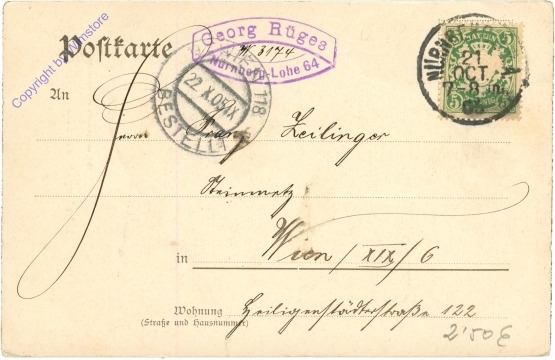 Georg Rüges
Nürnberg-Lohe 64
№ 3174
Postkarte
Copyright by Wnstore
An
WIEN 118
22.X.05.IX
BESTELLT
BAYERN
5
NÜRNBERG
21
OCT.
7-8
Herrn Franz Zeilinger
Steinmetz
in Wien / XIX / 6
Wohnung Heiligenstädterstraße 122
(Straße und Hausnummer)
2'50 €